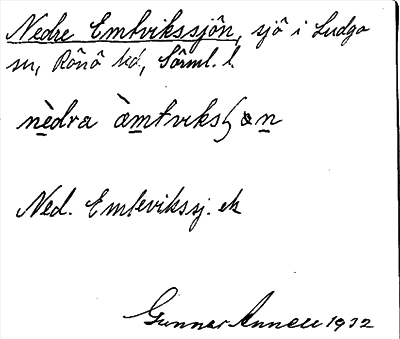 Nedre Emtvikssjön, sjö i Ludgo
sn, Rönö hd, Sörml. l.
nèdra àmtviksʃøn
Ned. Emtevikssj. ek
Gunnar Annell 1932